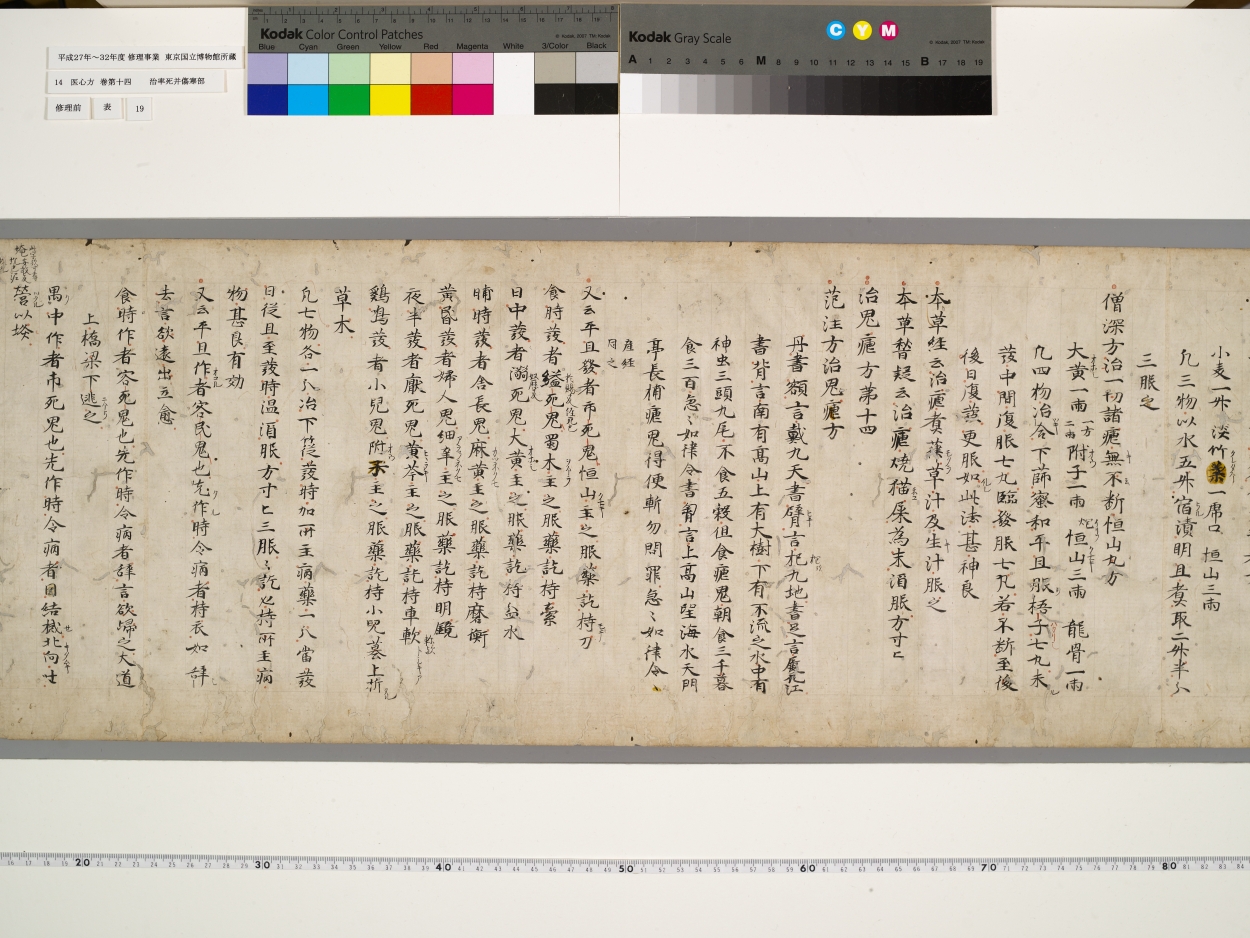 平成27年～32年度 修理事業 東京国立博物館所蔵
14 医心方 巻第十四 治卒死并傷寒部
修理前 表 19
Kodak Color Control Patches
© Kodak, 2007 TM: Kodak
Blue Cyan Green Yellow Red Magenta White 3/Color Black
Kodak Gray Scale
C Y M
© Kodak, 2007 TM: Kodak
A 1 2 3 4 5 6 M 8 9 10 11 12 13 14 15 B 17 18 19
小麦一升 淡竹葉一席口 恒山三兩
凡三物以水五升宿漬明旦煮取二升半分
三服之
僧深方治一切諸瘧無不断恒山丸方
大黄一兩一方二兩 附子一兩 恒山三兩 龍骨一兩
凡四物冶合下篩蜜和平旦服梧子七丸未
發中間復服七丸臨發服七丸若不断至後
後日復發更服如此法甚神良
本草経云治瘧煮蒴藋草汁及生汁服之
本草瞀疑云治瘧焼猫屎為末酒服方寸匕
治鬼瘧方第十四
范汪方治鬼瘧方
丹書額言戴九天書臂言抱九地書足言履九江
書背言南有高山上有大樹下有不流之水中有
神虫三頭九尾不食五穀但食瘧鬼朝食三千暮
食三百急〻如律令書胸言上高山望海水天門
亭長捕瘧鬼得便斬勿問罪急〻如律令
産経同之
又云平旦發者市死鬼恒山主之服藥訖持刀
食時發者縊死鬼蜀木主之服藥訖持索
日中發者溺死鬼大黄主之服藥訖持盆水
晡時發者舎長鬼麻黄主之服藥訖持磨衡
黄昏發者婦人鬼細辛主之服藥訖持明鏡
夜半發者厭死鬼黄芩主之服藥訖持車軟
鷄鳴發者小兒鬼附子主之服藥訖持小兒墓上折
草木
凡七物各二分冶下簁發時加所主病藥一分當發
日従旦至發時温酒服方寸匕三服〻訖必持所主病
物甚良有効
又云平旦作者客民鬼也先作時令病者持衣如辞
去言欲遠出立愈
食時作者客死鬼也先作時令病者辞言欲歸之大道
上橋梁下逃之
禺中作者市死鬼也先作時令病者因結械北向寸
營以埃
20 30 40 50 60 70 80